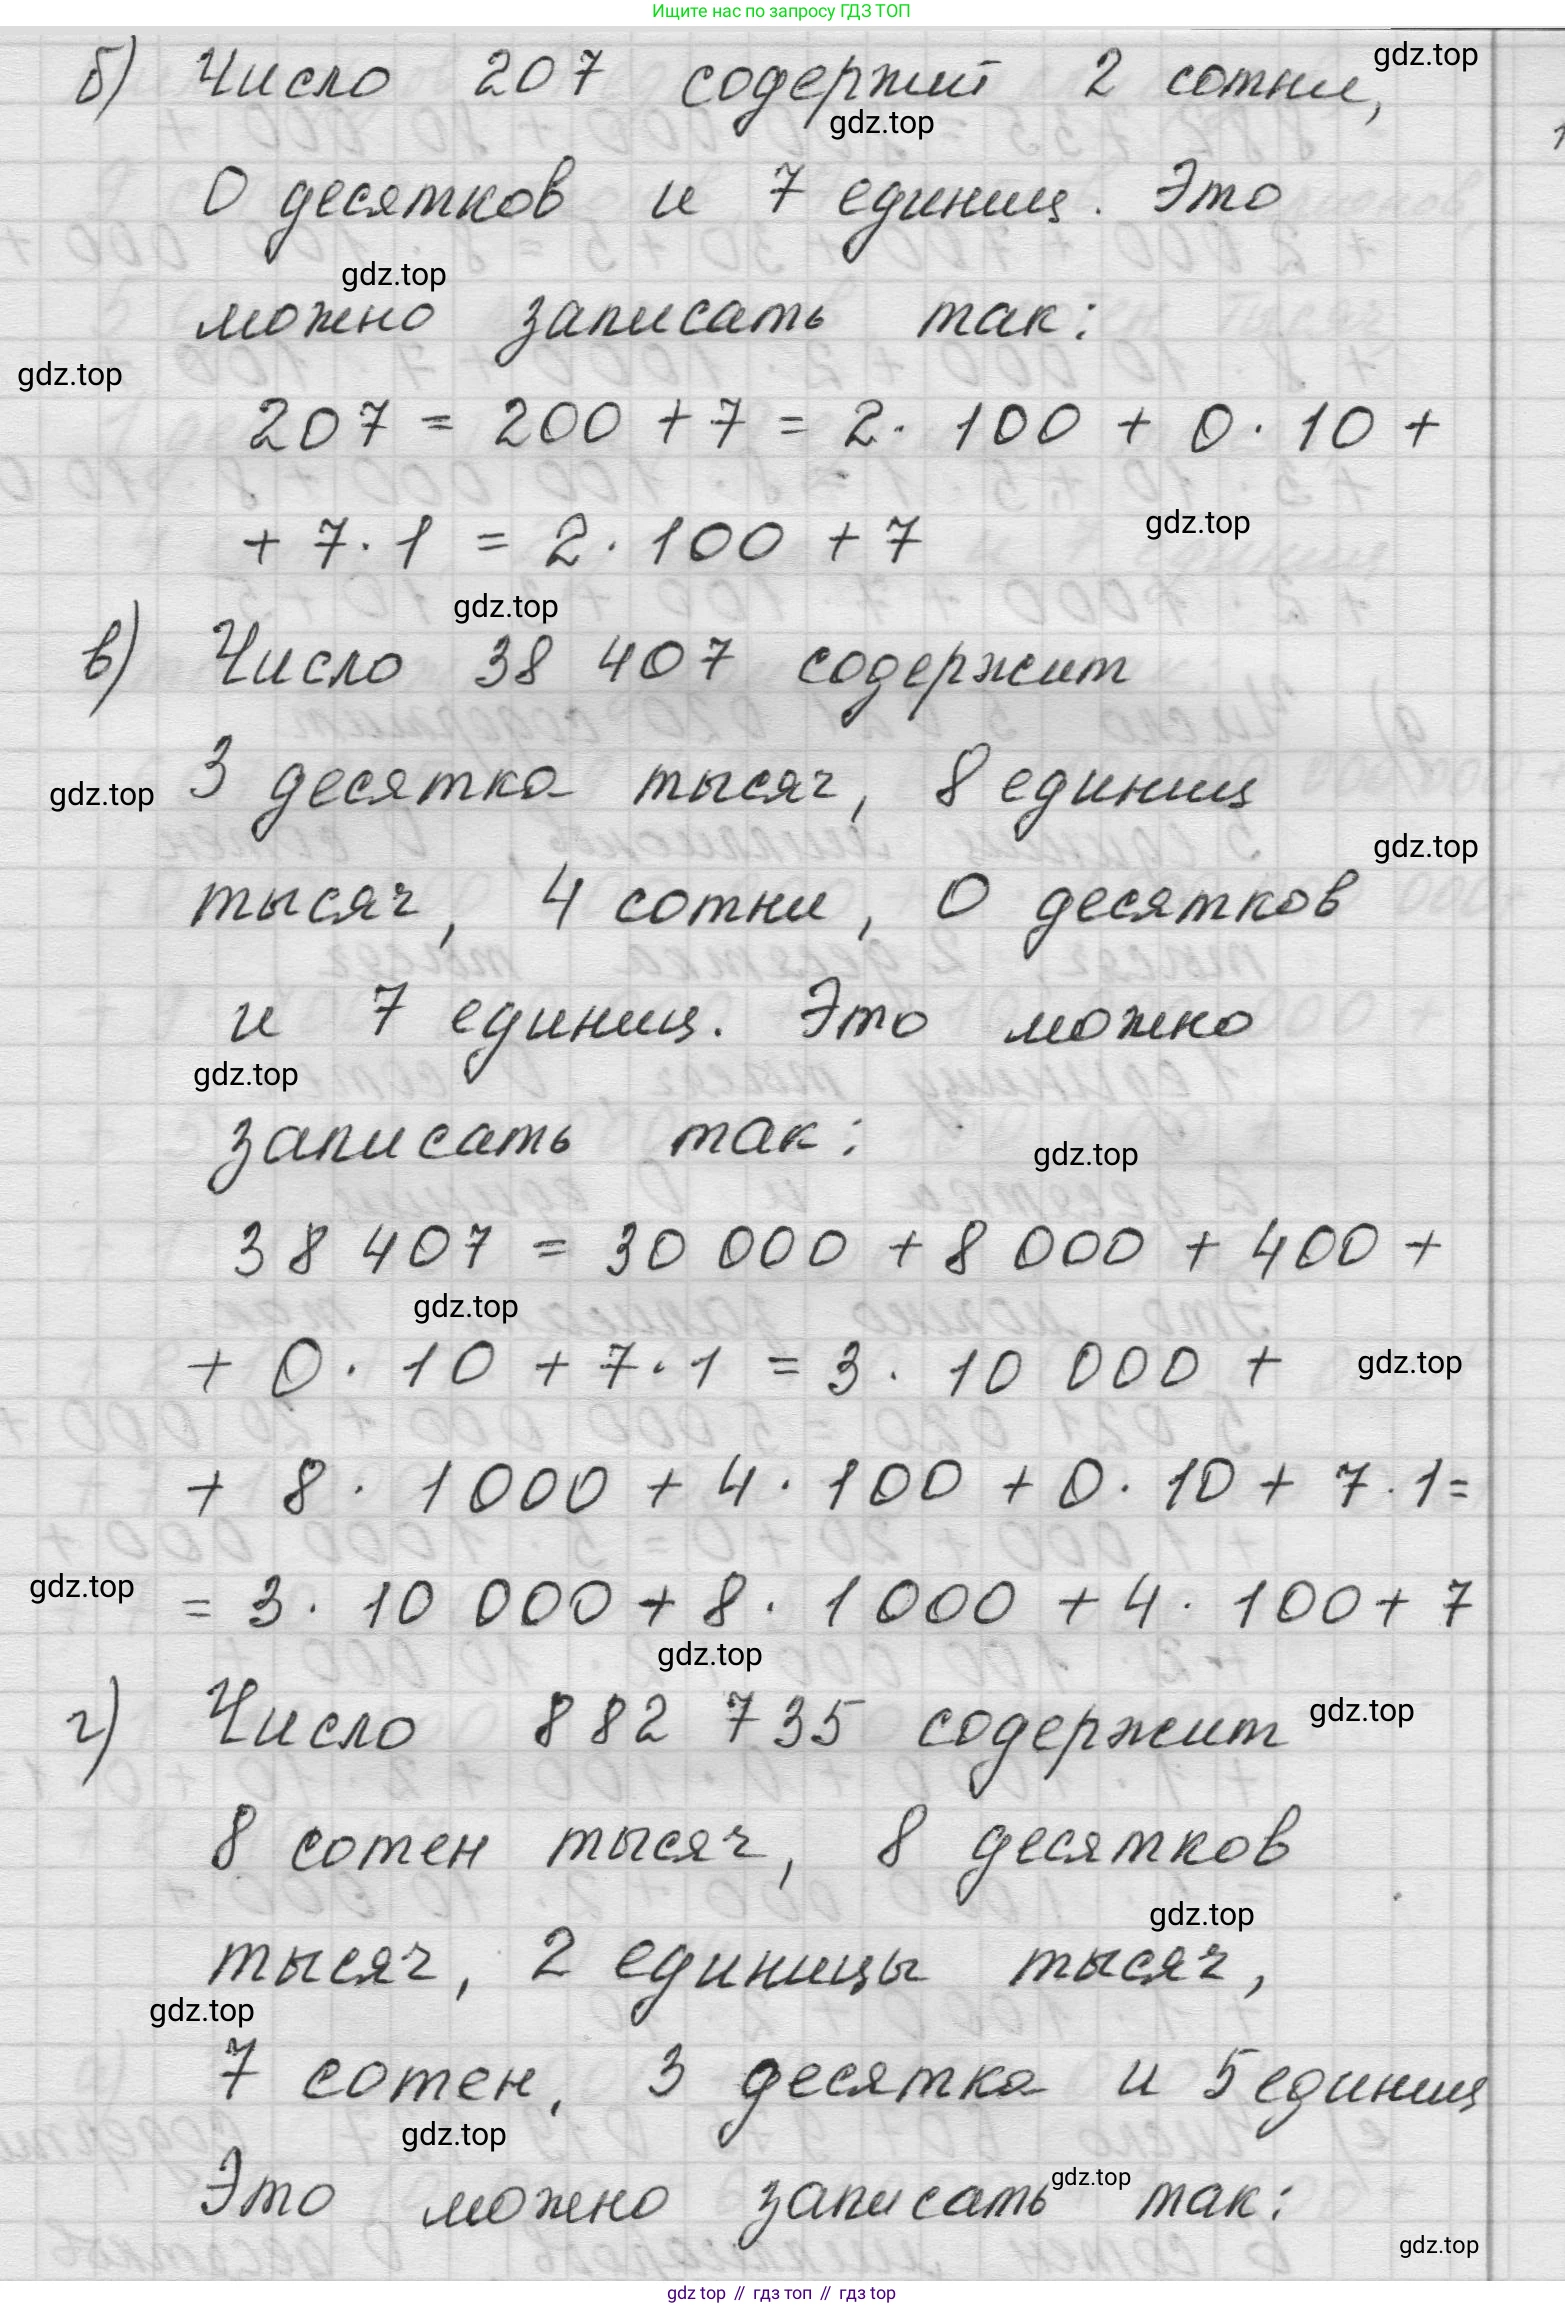 Ищите нас по запросу ГДЗ ТОП
gdz.top
б) Число 207 содержит 2 сотни,
gdz.top
0 десятков и 7 единиц. Это
gdz.top
можно записать так:
gdz.top
207 = 200 + 7 = 2 · 100 + 0 · 10 +
+ 7 · 1 = 2 · 100 + 7
gdz.top
gdz.top
в) Число 38 407 содержит
3 десятка тысяч, 8 единиц
gdz.top
gdz.top
тысяч, 4 сотни, 0 десятков
и 7 единиц. Это можно
gdz.top
записать так:
gdz.top
38 407 = 30 000 + 8 000 + 400 +
gdz.top
+ 0 · 10 + 7 · 1 = 3 · 10 000 +
gdz.top
+ 8 · 1000 + 4 · 100 + 0 · 10 + 7 · 1 =
gdz.top
= 3 · 10 000 + 8 · 1 000 + 4 · 100 + 7
gdz.top
г) Число 882 735 содержит
gdz.top
8 сотен тысяч, 8 десятков
gdz.top
тысяч, 2 единицы тысяч,
gdz.top
7 сотен, 3 десятка и 5 единиц
gdz.top
Это можно записать так:
gdz.top
gdz.top
gdz top // гдз топ // гдз top